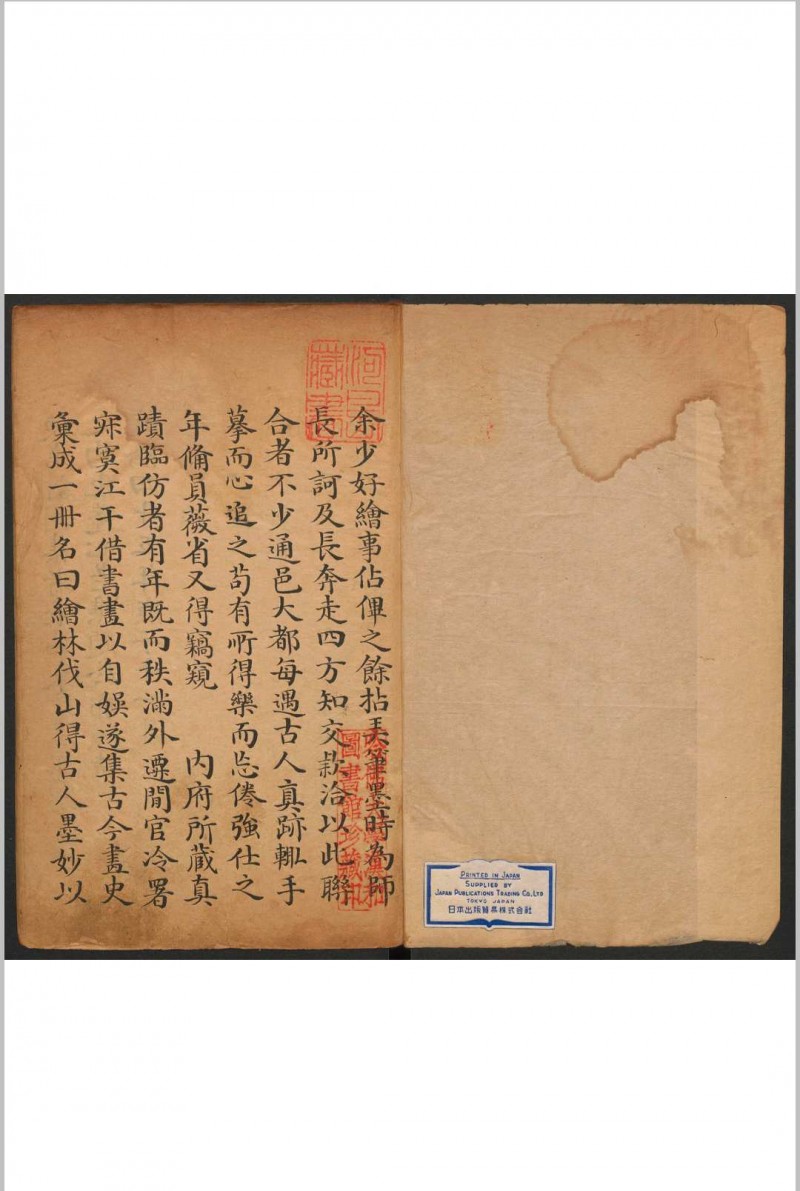 余少好繪事佔俾之餘拈弄筆墨時為師
長所訶及長奔走四方知交款洽以此聯
合者不少通邑大都每遇古人真跡輒手
摹而心追之苟有所得樂而忘倦強仕之
年偹員薇省又得竊窺 内府所蔵真
蹟臨仿者有年既而秩滿外遷閒官冷署
寂寞江干借書畫以自娛遂集古今畫史
彙成一冊名曰繪林伐山得古人墨妙以
藏書
圖書館珍藏印
PRINTED IN JAPAN
SUPPLIED BY
JAPAN PUBLICATIONS TRADING CO., LTD
TOKYO JAPAN
日本出版貿易株式会社